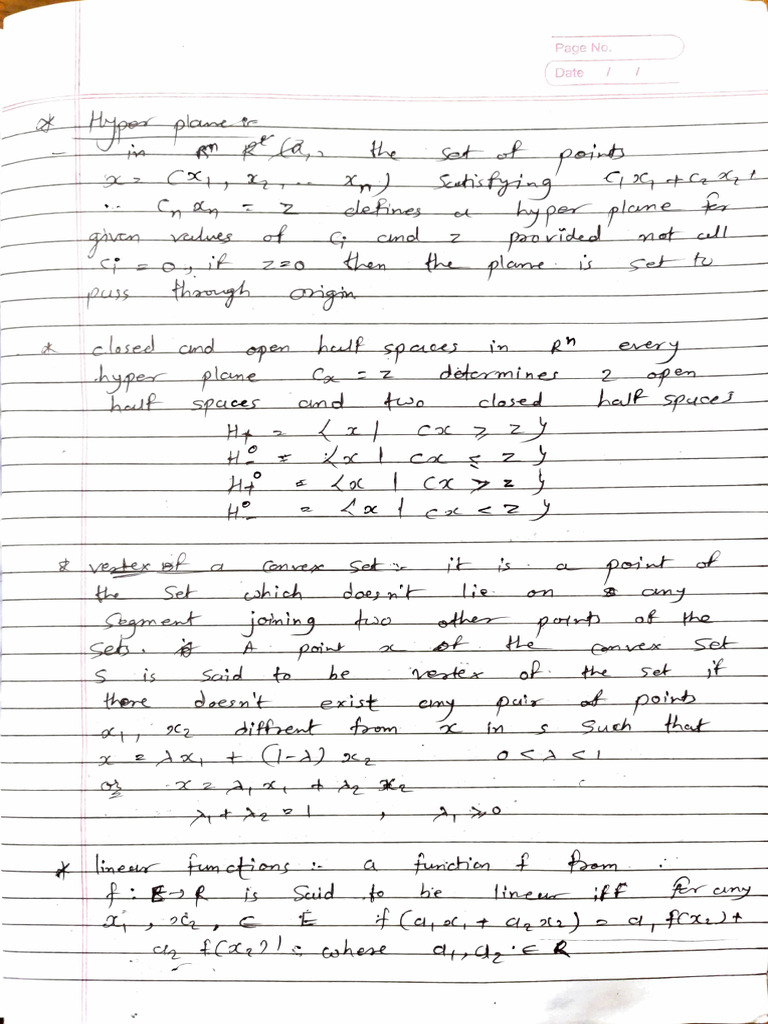 Page No.
Date / /
* Hyper plane :-
- in Rⁿ the set of points
x = (x₁, x₂, ... xₙ) satisfying c₁x₁ + c₂x₂ +
... cₙxₙ = z defines a hyper plane for
given values of cᵢ and z provided not all
cᵢ = 0, if z=0 then the plane is set to
pass through origin.
* closed and open half spaces in Rⁿ every
hyper plane cx = z determines 2 open
half spaces and two closed half spaces
H₊ = {x | cx ⩾ z}
H₋⁰ = {x | cx ⩽ z}
H₊⁰ = {x | cx > z}
H₋⁰ = {x | cx < z}
* vertex of a convex set :- it is a point of
the set which doesn't lie on any
segment joining two other points of the
set. A point x of the convex set
S is said to be vertex of the set if
there doesn't exist any pair of points
x₁, x₂ diffrent from x in s such that
x = λx₁ + (1-λ) x₂ 0 < λ < 1
or x = λ₁x₁ + λ₂x₂
λ₁ + λ₂ = 1 , λ₁ ⩾ 0
* linear functions :- a function f from
f : E → R is said to be linear iff for any
x₁, x₂, ∈ E if (a₁x₁ + a₂x₂) = a₁ f(x₂) +
a₂ f(x₂) = where a₁, a₂ ∈ R